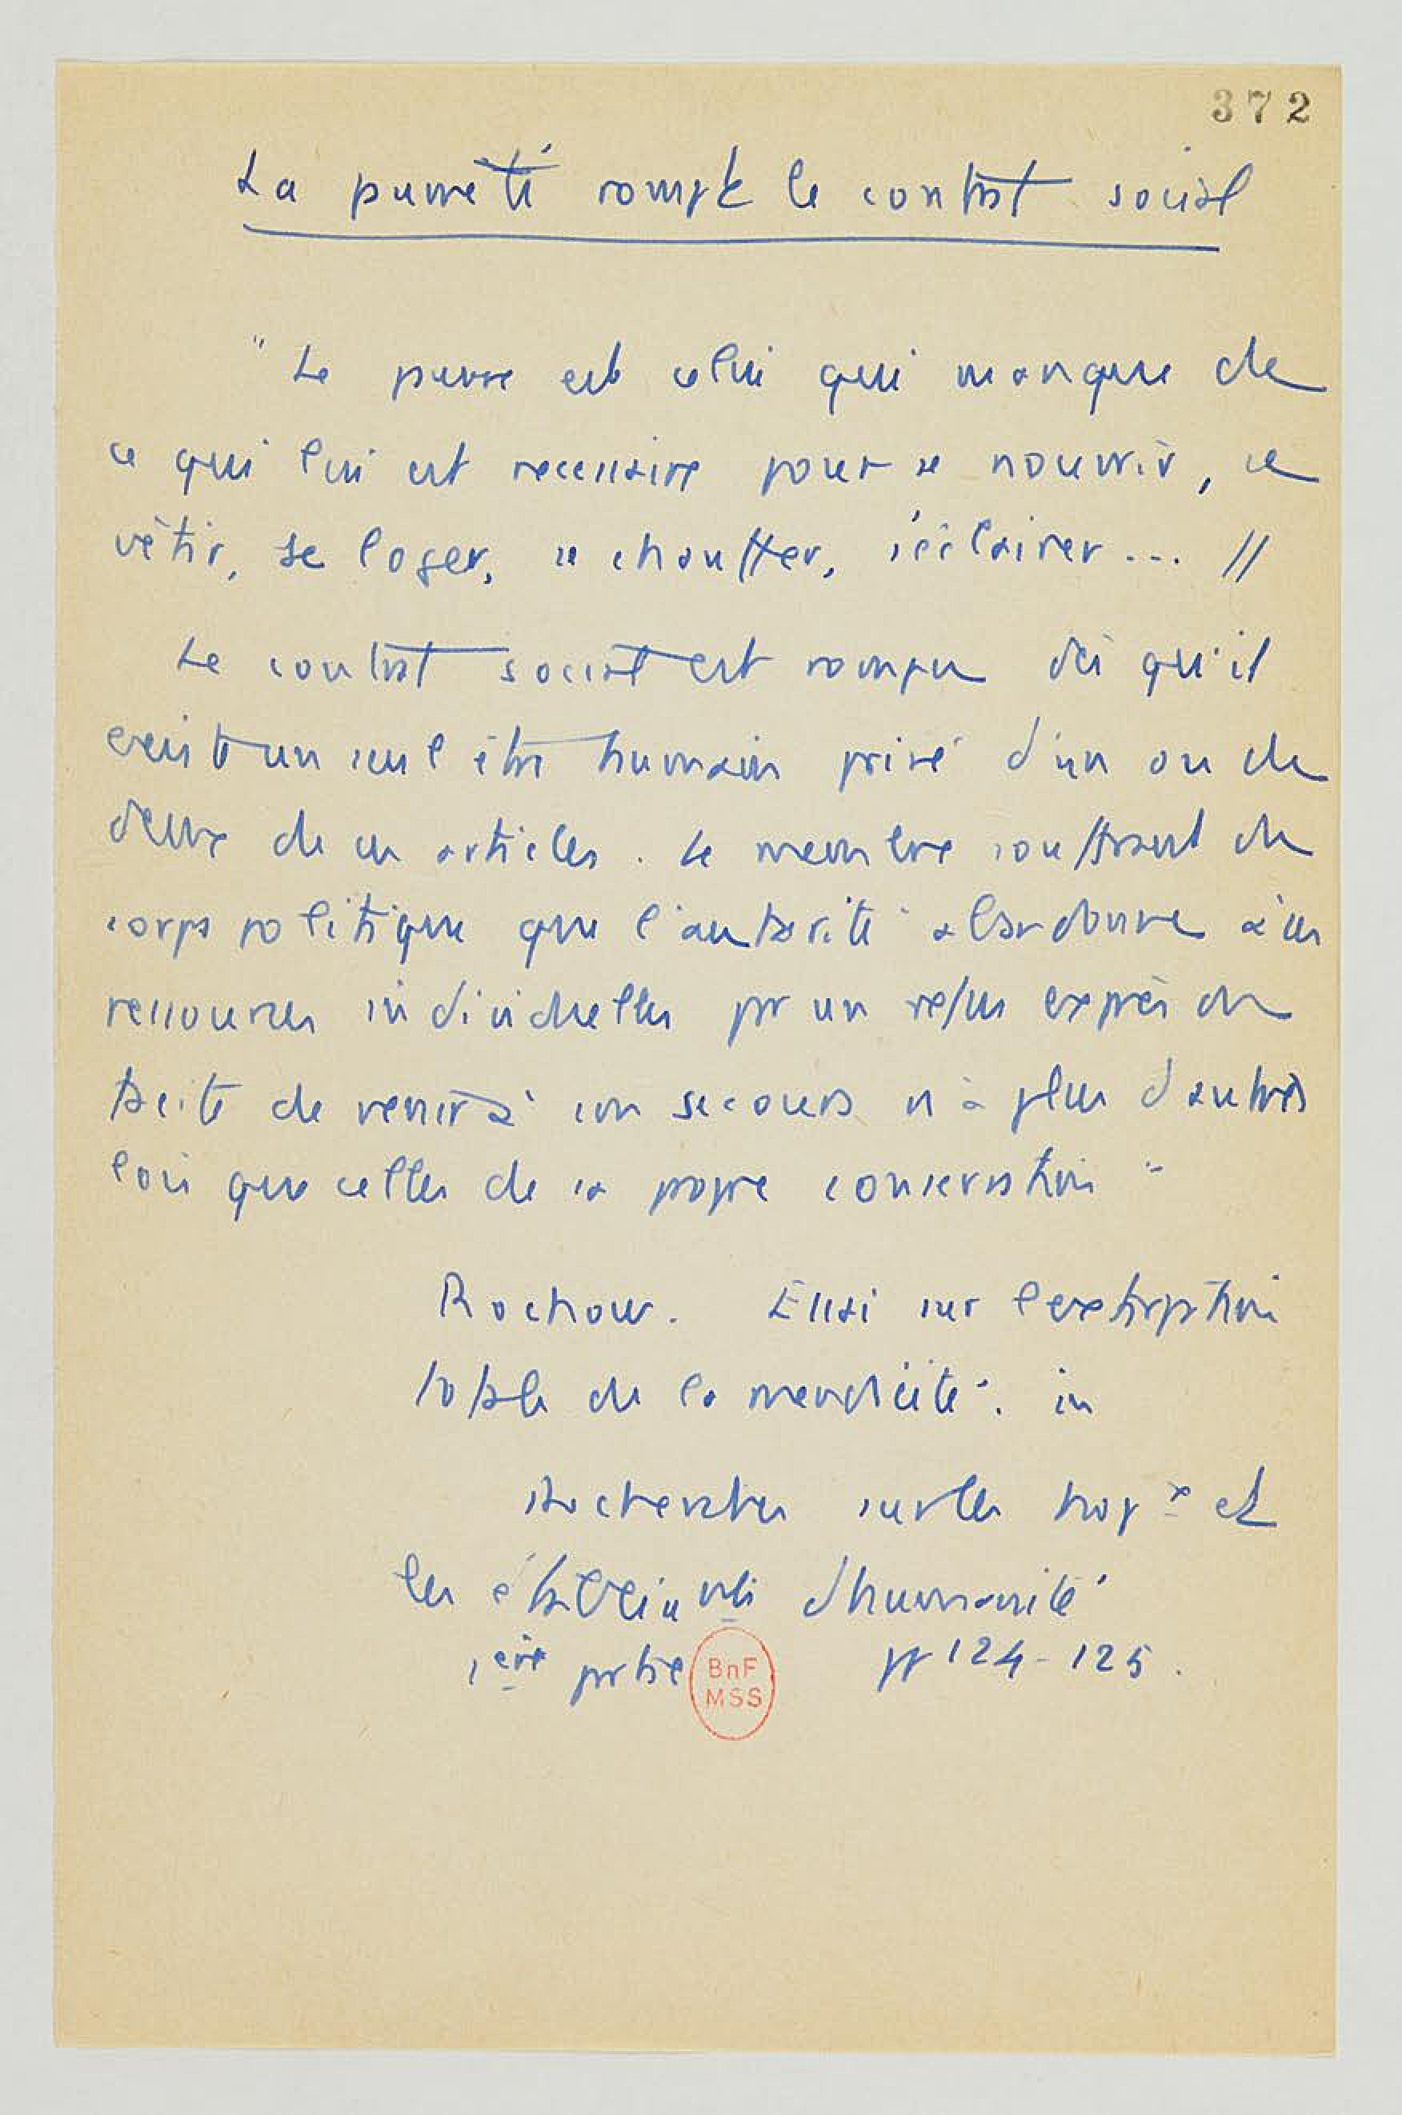 372
La pauvreté rompt le contrat social
" Le pauvre est celui qui manque de
ce qui lui est necessaire pour se nourrir, se
vêtir, se loger, se chauffer, s'éclairer... //
Le contrat social est rompu dès qu'il
existe un seul être humain privé d'un ou de
deux de ces articles. Le membre souffrant du
corps politique que l'autorité abandonne à ses
ressources individuelles par un refus exprès ou
tacite de venir à son secours n'a plus d'autres
lois que celles de sa propre conservation "
Rochoux. Essai sur l'extirpation
totale de la mendicité. in
Recherches sur les hop.x et
les établissmts d'humanité
1ère partie pp 124-125.
BnF
MSS